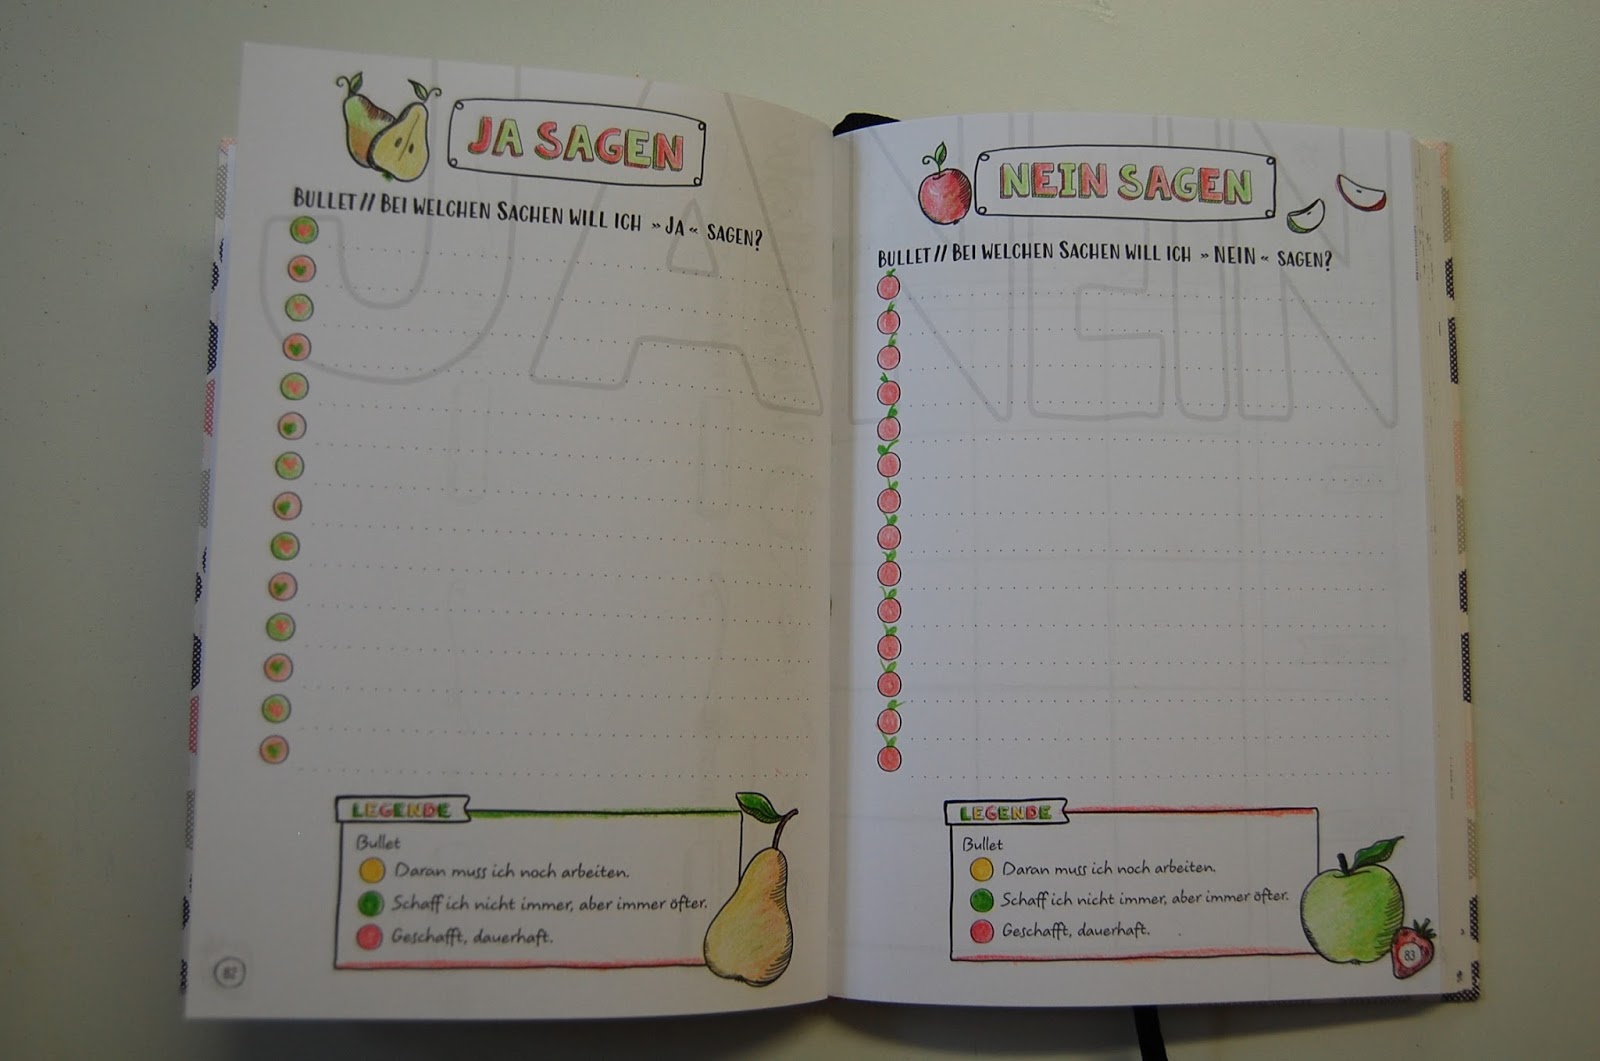 JA
JA SAGEN
BULLET // BEI WELCHEN SACHEN WILL ICH » JA « SAGEN?
LEGENDE
Bullet
Daran muss ich noch arbeiten.
Schaff ich nicht immer, aber immer öfter.
Geschafft, dauerhaft.
82
NEIN
NEIN SAGEN
BULLET // BEI WELCHEN SACHEN WILL ICH » NEIN « SAGEN?
LEGENDE
Bullet
Daran muss ich noch arbeiten.
Schaff ich nicht immer, aber immer öfter.
Geschafft, dauerhaft.
83